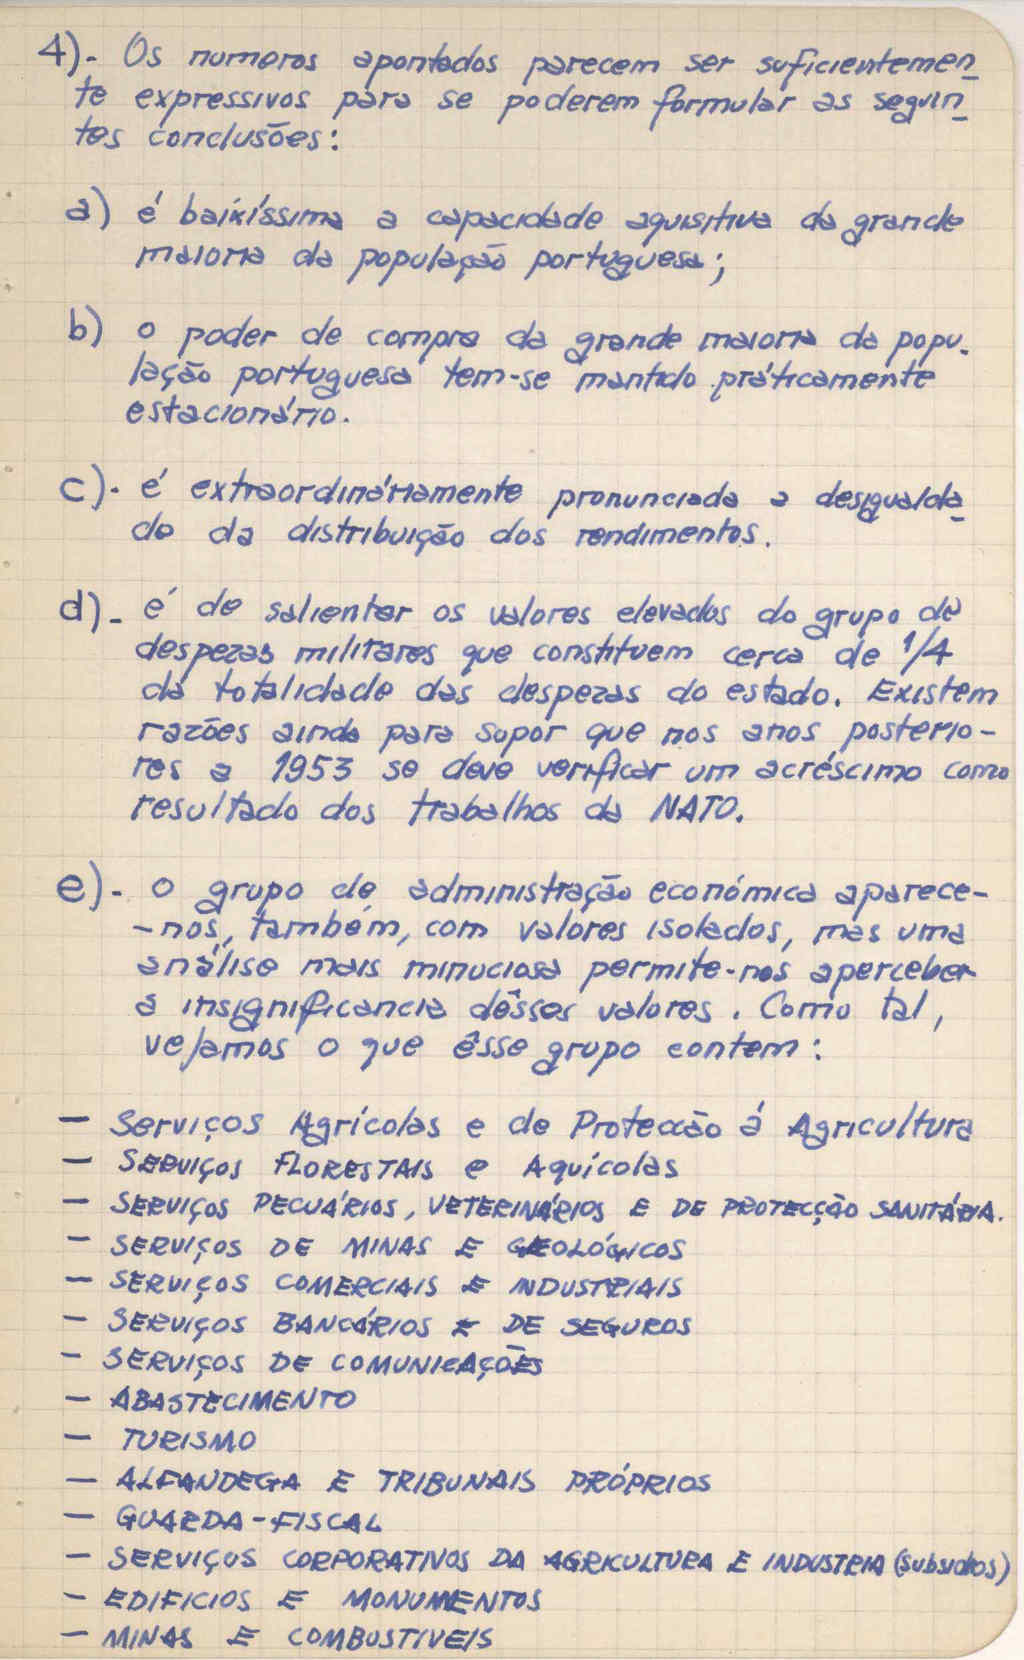 4)- Os numeros apontados parecem ser suficientemen_
te expressivos para se poderem formular as seguin_
tes conclusões:
a) é baixíssima a capacidade aquisitiva da grande
maioria da população portuguesa;
b) o poder de compra da grande maioria da popu-
lação portuguesa tem-se mantido práticamente
estacionário.
c)- é extraordináriamente pronunciada a desigualda_
de da distribuição dos rendimentos.
d)- é de salientar os valores elevados do grupo de
despezas militares que constituem cerca de 1/4
da totalidade das despezas do estado. Existem
razões ainda para supor que nos anos posterio-
res a 1953 se deve verificar um acréscimo como
resultado dos trabalhos da NATO.
e)- o grupo de administração económica aparece-
-nos, também, com valores isolados, mas uma
análise mais minuciosa permite-nos aperceber
a insignificancia dêsses valores. Como tal,
vejamos o que êsse grupo contem:
- Serviços Agrícolas e de Protecção á Agricultura
- SERVIÇOS FLORESTAIS e Aquícolas
- SERVIÇOS PECUÁRIOS, VETERINÁRIOS E DE PROTECÇÃO SANITÁRIA.
- SERVIÇOS DE MINAS E GEOLÓGICOS
- SERVIÇOS COMERCIAIS E INDUSTRIAIS
- SERVIÇOS BANCÁRIOS E DE SEGUROS
- SERVIÇOS DE COMUNICAÇÕES
- ABASTECIMENTO
- TURISMO
- ALFANDEGA E TRIBUNAIS PRÓPRIOS
- GUARDA-FISCAL
- SERVIÇOS CORPORATIVOS DA AGRICULTURA E INDUSTRIA (subsidios)
- EDIFICIOS E MONUMENTOS
- MINAS E COMBUSTIVEIS